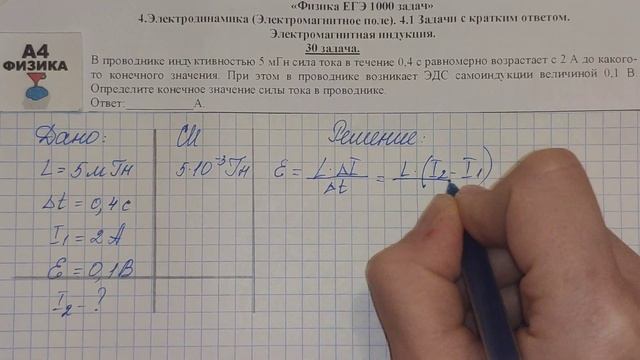 «Физика ЕГЭ 1000 задач»
4.Электродинамика (Электромагнитное поле). 4.1 Задачи с кратким ответом.
Электромагнитная индукция.
30 задача.
А4
ФИЗИКА
В проводнике индуктивностью 5 мГн сила тока в течение 0,4 с равномерно возрастает с 2 А до какого-
то конечного значения. При этом в проводнике возникает ЭДС самоиндукции величиной 0,1 В.
Определите конечное значение силы тока в проводнике.
Ответ: ____________ А.
Дано: СИ Решение:
L = 5 мГн 5·10⁻³ Гн Ɛ = L·ΔI / Δt = L·(I₂ - I₁)
Δt = 0,4 с
I₁ = 2 А
Ɛ = 0,1 В
I₂ - ?